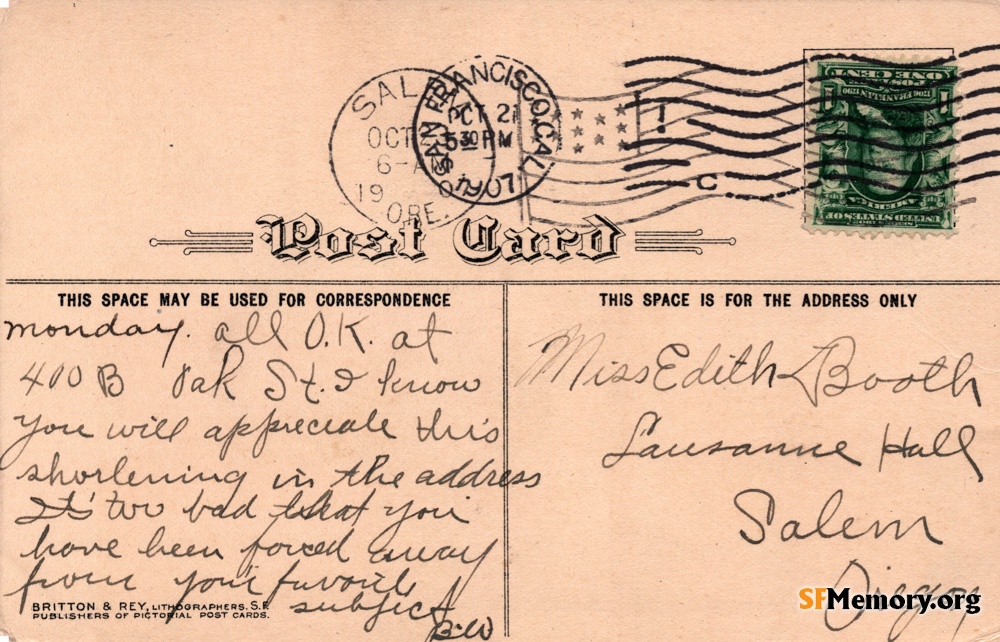 SAL
OCT 2
6-A
19
ORE.
SAN FRANCISCO, CAL.
OCT 21
5 30 PM
C
ONE CENT
UNITED STATES OF
AMERICA
Post Card
THIS SPACE MAY BE USED FOR CORRESPONDENCE
THIS SPACE IS FOR THE ADDRESS ONLY
monday. all O.K. at
400 B Oak St. I know
you will appreciate this
shortening in the address
It's too bad that you
have been forced away
from your favorite
subject
BW
Miss Edith Booth
Lausanne Hall
Salem
Oregon
BRITTON & REY, LITHOGRAPHERS. S.F.
PUBLISHERS OF PICTORIAL POST CARDS.
SFMemory.org